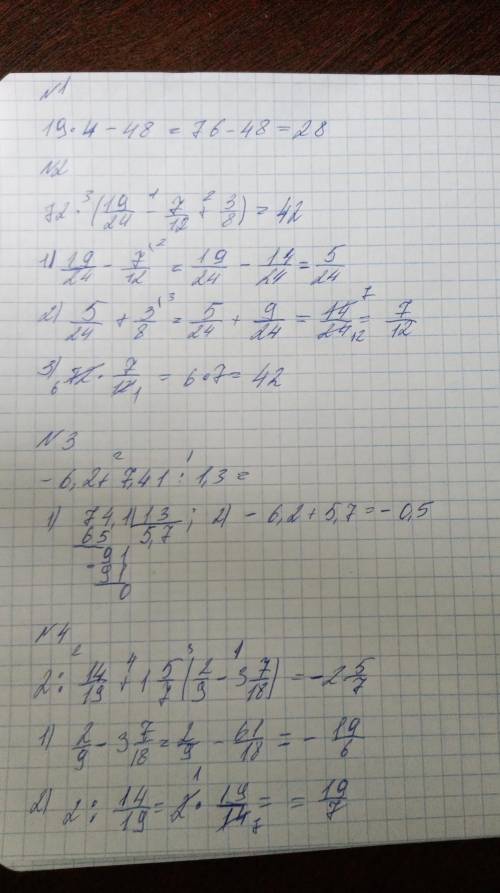 N1
19·4 - 48 = 76 - 48 = 28
N2
72 ·³ (19/24 -¹ 7/12 +² 3/8) = 42
1) 19/24 - 7/12 ⁽² = 19/24 - 14/24 = 5/24
2) 5/24 + 3/8 ⁽³ = 5/24 + 9/24 = 14/24 7 12 = 7/12
3) 6 72 · 7/12 1 = 6·7 = 42
N3
-6,2 +² 7,41 :¹ 1,3 =
1) 74,1 | 13 ; 2) -6,2 + 5,7 = -0,5
65 5,7
- 91
91
0
N4
2 :² 14/19 +⁴ 1 5/7 ³ (2/9 -¹ 3 7/18) = -2 5/7
1) 2/9 - 3 7/18 = 2/9 - 61/18 = - 19/6
2) 2 : 14/19 = 2 1 · 19/14 7 = = 19/7